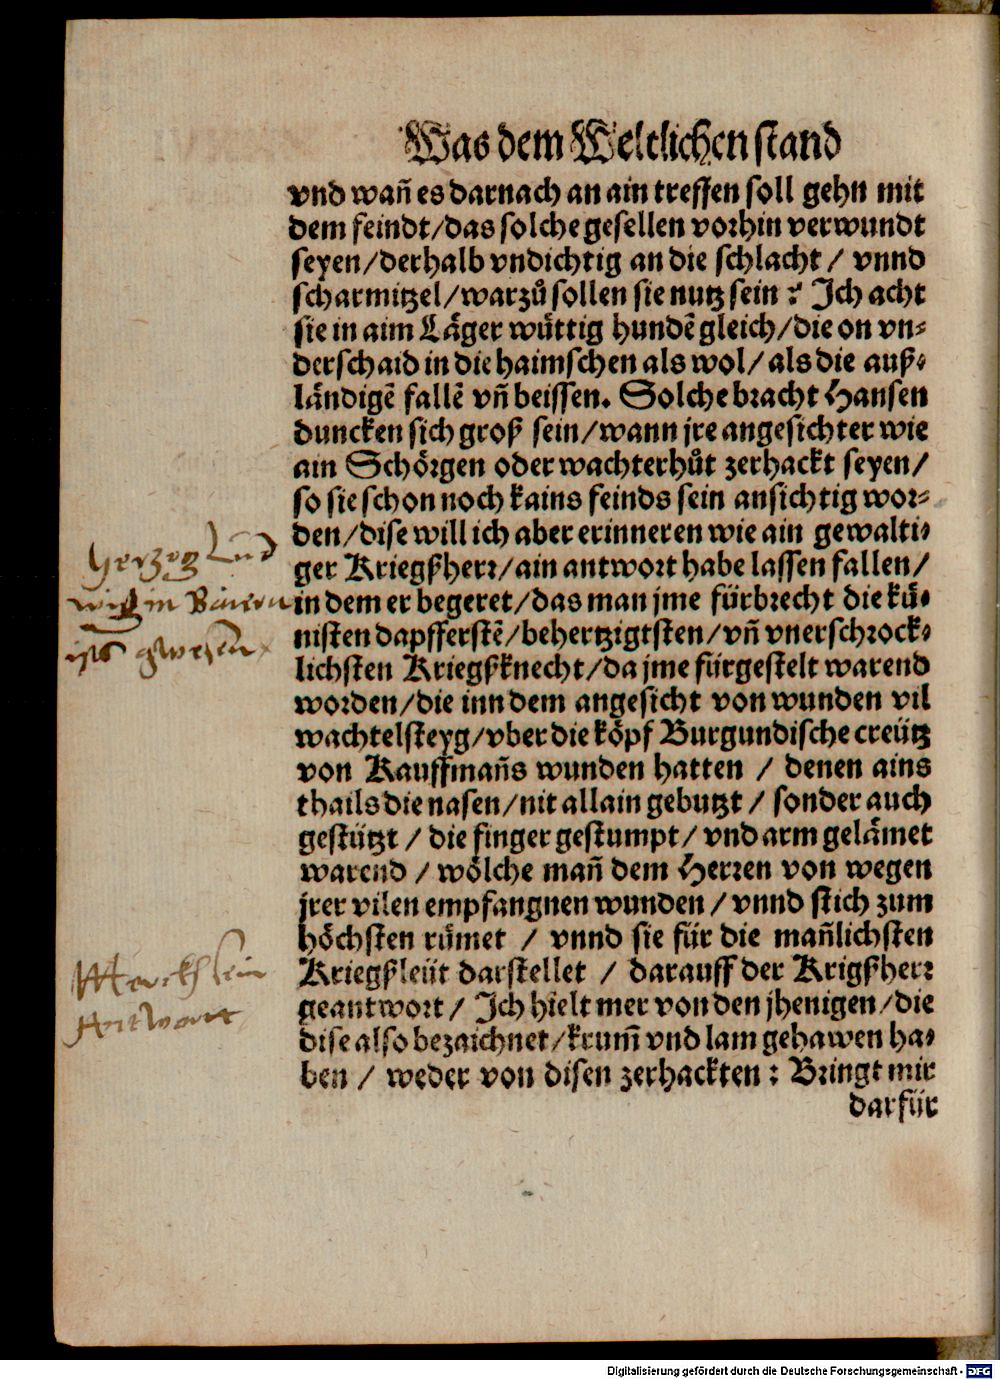 Was dem Weltlichen stand
vnd wañ es darnach an ain treffen soll gehn mit
dem feindt/das solche gesellen vorhin verwundt
seyen/derhalb vndichtig an die schlacht / vnnd
scharmitzel/warzů sollen sie nutz sein ? Ich acht
sie in aim Läger wüttig hundẽ gleich/die on vn⸗
derschaid in die haimschen als wol/ als die auß⸗
ländigẽ fallẽ vñ beissen. Solche bracht Hansen
duncken sich groß sein/wann jre angesichter wie
ain Schörgen oder wachterhůt zerhackt seyen/
so sie schon noch kains feinds sein ansichtig wor⸗
den/dise will ich aber erinneren wie ain gewalti⸗
ger Kriegßherr/ain antwort habe lassen fallen/
in dem er begeret/das man jme fürbrecht die kü⸗
nisten dapfferstẽ/behertzigtsten/vñ vnerschrock⸗
lichsten Kriegßknecht/da jme fürgestelt warend
worden/die inn dem angesicht von wunden vil
wachtelsteyg/vber die köpf Burgundische creütz
von Kauffmañs wunden hatten / denen ains
thails die nasen/nit allain gebutzt / sonder auch
gestützt / die finger gestumpt/ vnd arm gelämet
warend / wölche mañ dem Herren von wegen
jrer vilen empfangnen wunden / vnnd stich zum
höchsten rümet / vnnd sie für die mañlichsten
Kriegßleüt darstellet / darauff der Krigßherr
geantwort / Ich hielt mer von den jhenigen/die
dise also bezaichnet/krum̃ vnd lam gehawen ha⸗
ben / weder von disen zerhackten : Bringt mir
darfür
Herzog Lud
wig in Baiern
ists gwesen
Merckh sein
Antwort
Digitalisierung gefördert durch die Deutsche Forschungsgemeinschaft - DFG